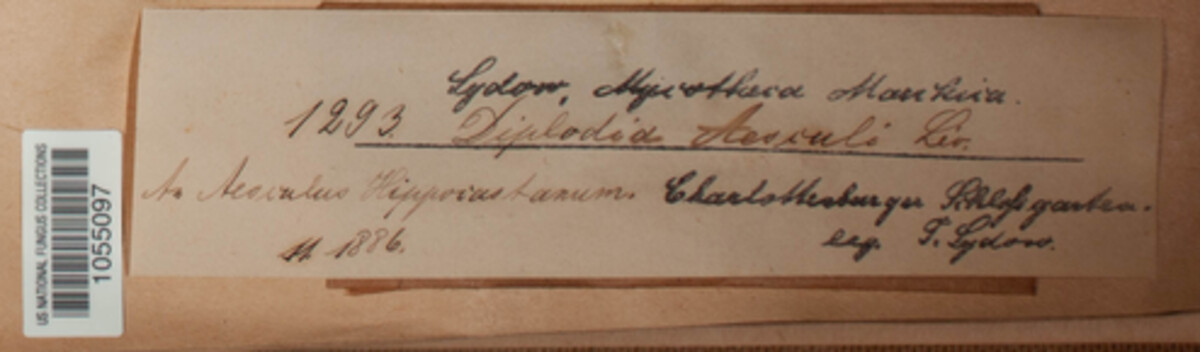 Sydow, Mycotheca Marchica.
1293. Diplodia Aesculi Lév.
An Aesculus Hippocastanum. Charlottenburger Schloßgarten.
1886. leg. P. Sydow.
US NATIONAL FUNGUS COLLECTIONS
1055097